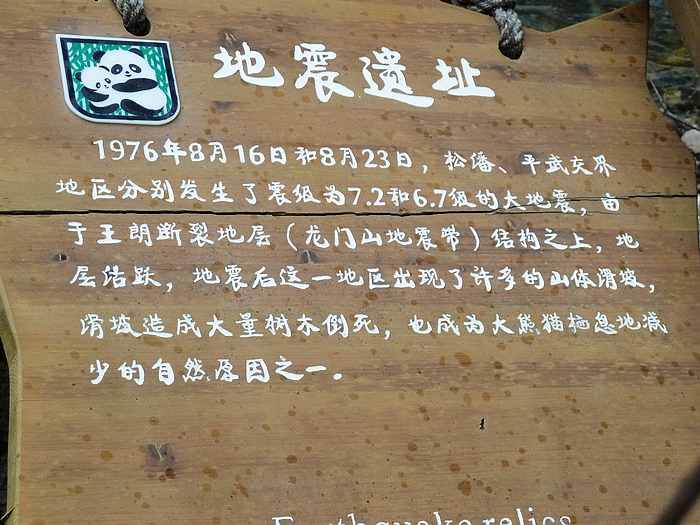 地震遗址
1976年8月16日和8月23日，松潘、平武交界
地区分别发生了震级为7.2和6.7级的大地震，由
于王朗断裂地层（龙门山地震带）结构之上，地
层活跃，地震后这一地区出现了许多的山体滑坡，
滑坡造成大量树木倒死，也成为大熊猫栖息地减
少的自然原因之一。
Earthquake relics